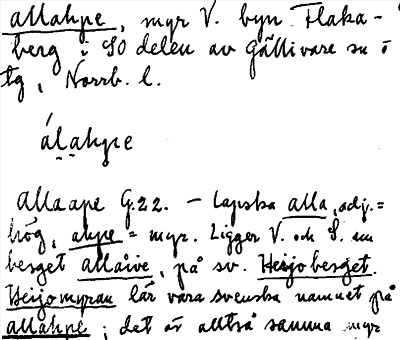 allahpe, myr V. byn Flaka-
berg i SO delen av Gällivare sn o
tg, Norrb. l.
álahpe
Alla ape G.22. - lapska alla, adj. =
hög, ahpe = myr. Ligger V. och S. om
berget allaive, på sv. Heijoberget.
Heijomyran lär vara svenska namnet på
allahpe; det är alltså samma myr